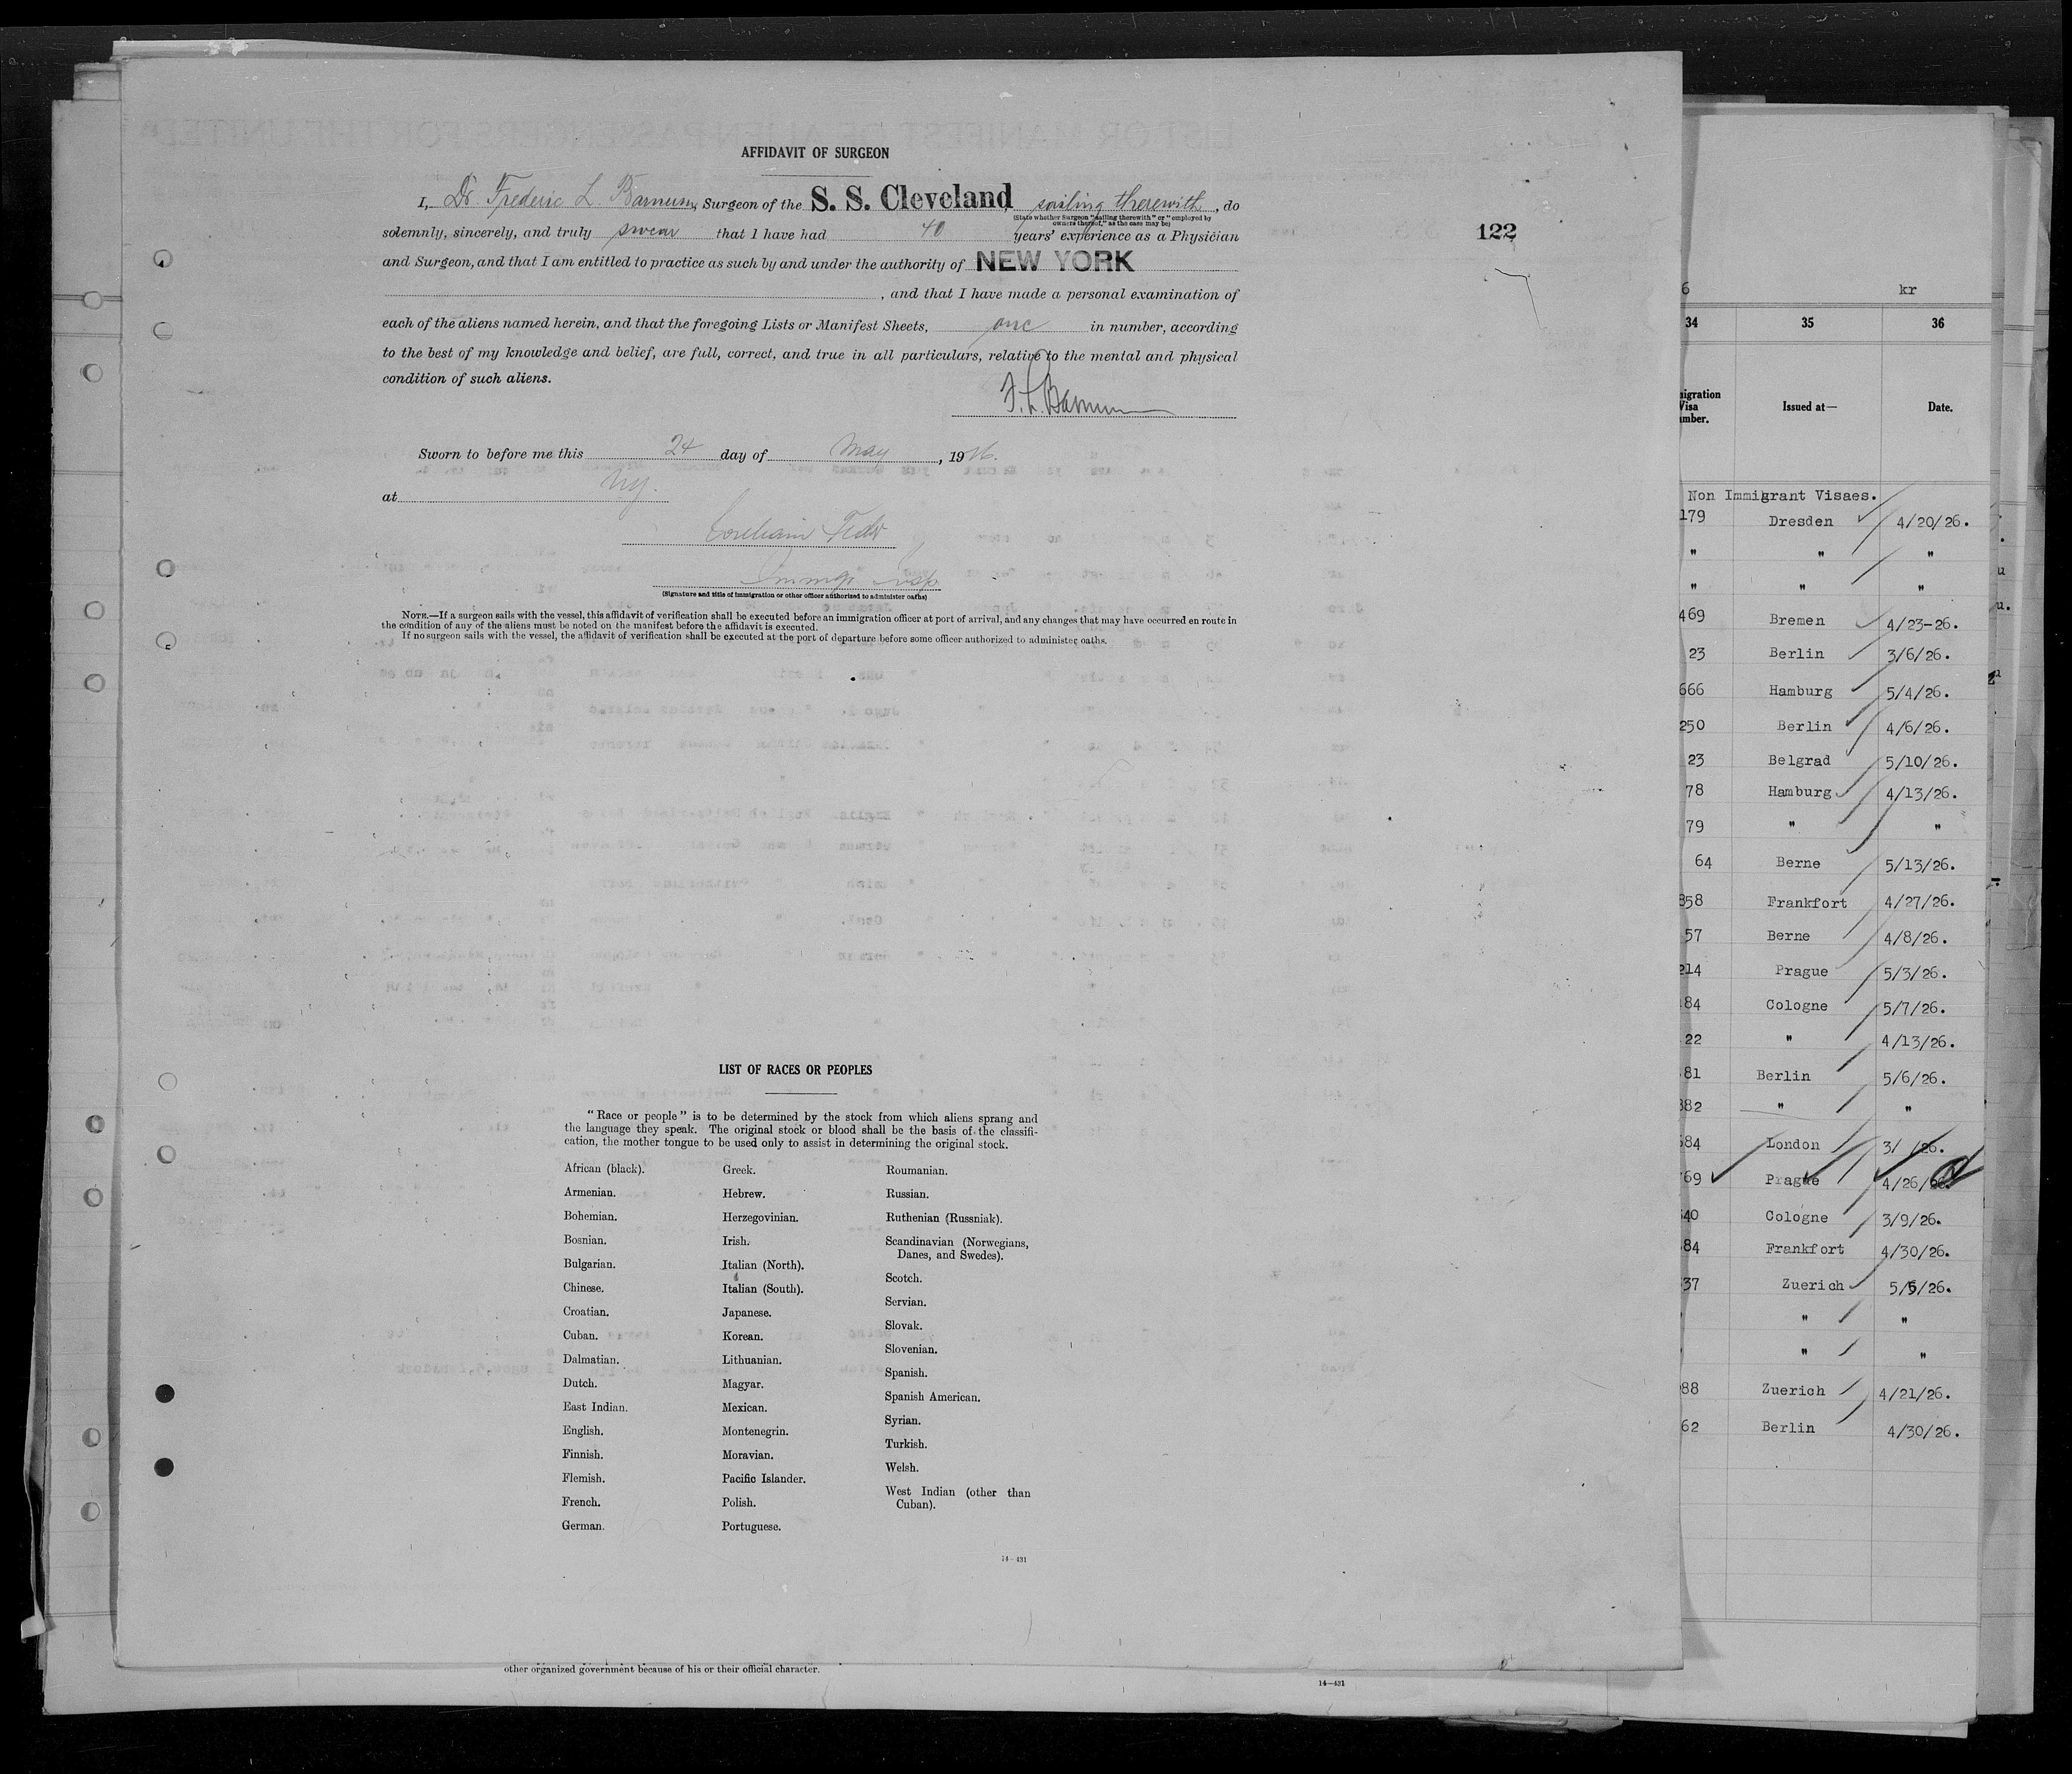 AFFIDAVIT OF SURGEON
I, Dr. Frederic L. Barnum, Surgeon of the S. S. Cleveland, sailing therewith, do
(State whether Surgeon "sailing therewith" or "employed by
owners thereof," as the case may be)
solemnly, sincerely, and truly swear that I have had 40 years' experience as a Physician
and Surgeon, and that I am entitled to practice as such by and under the authority of NEW YORK
, and that I have made a personal examination of
each of the aliens named herein, and that the foregoing Lists or Manifest Sheets, one in number, according
to the best of my knowledge and belief, are full, correct, and true in all particulars, relative to the mental and physical
condition of such aliens.
F. L. Barnum
Sworn to before me this 24 day of May, 1926.
at NY.
Immgr Insp
(Signature and title of immigration or other officer authorized to administer oaths)
NOTE.—If a surgeon sails with the vessel, this affidavit of verification shall be executed before an immigration officer at port of arrival, and any changes that may have occurred en route in
the condition of any of the aliens must be noted on the manifest before the affidavit is executed.
If no surgeon sails with the vessel, the affidavit of verification shall be executed at the port of departure before some officer authorized to administer oaths.
122
LIST OF RACES OR PEOPLES
"Race or people" is to be determined by the stock from which aliens sprang and
the language they speak. The original stock or blood shall be the basis of the classifi-
cation, the mother tongue to be used only to assist in determining the original stock.
African (black).
Armenian.
Bohemian.
Bosnian.
Bulgarian.
Chinese.
Croatian.
Cuban.
Dalmatian.
Dutch.
East Indian.
English.
Finnish.
Flemish.
French.
German.
Greek.
Hebrew.
Herzegovinian.
Irish.
Italian (North).
Italian (South).
Japanese.
Korean.
Lithuanian.
Magyar.
Mexican.
Montenegrin.
Moravian.
Pacific Islander.
Polish.
Portuguese.
Roumanian.
Russian.
Ruthenian (Russniak).
Scandinavian (Norwegians,
Danes, and Swedes).
Scotch.
Servian.
Slovak.
Slovenian.
Spanish.
Spanish American.
Syrian.
Turkish.
Welsh.
West Indian (other than
Cuban).
14—431
other organized government because of his or their official character.
14—431
6 kr
34 35 36
migration
Visa
number. Issued at— Date.
Non Immigrant Visaes.
179 Dresden 4/20/26.
" " "
" " "
469 Bremen 4/23-26.
23 Berlin 3/6/26.
666 Hamburg 5/4/26.
250 Berlin 4/6/26.
23 Belgrad 5/10/26.
78 Hamburg 4/13/26.
79 " "
64 Berne 5/13/26.
858 Frankfort 4/27/26.
57 Berne 4/8/26.
214 Prague 5/3/26.
84 Cologne 5/7/26.
22 " 4/13/26.
81 Berlin 5/6/26.
882 " "
84 London 3/ /26.
69 Prague 4/26/26.
40 Cologne 3/9/26.
84 Frankfort 4/30/26.
37 Zuerich 5/5/26.
" "
" "
88 Zuerich 4/21/26.
62 Berlin 4/30/26.